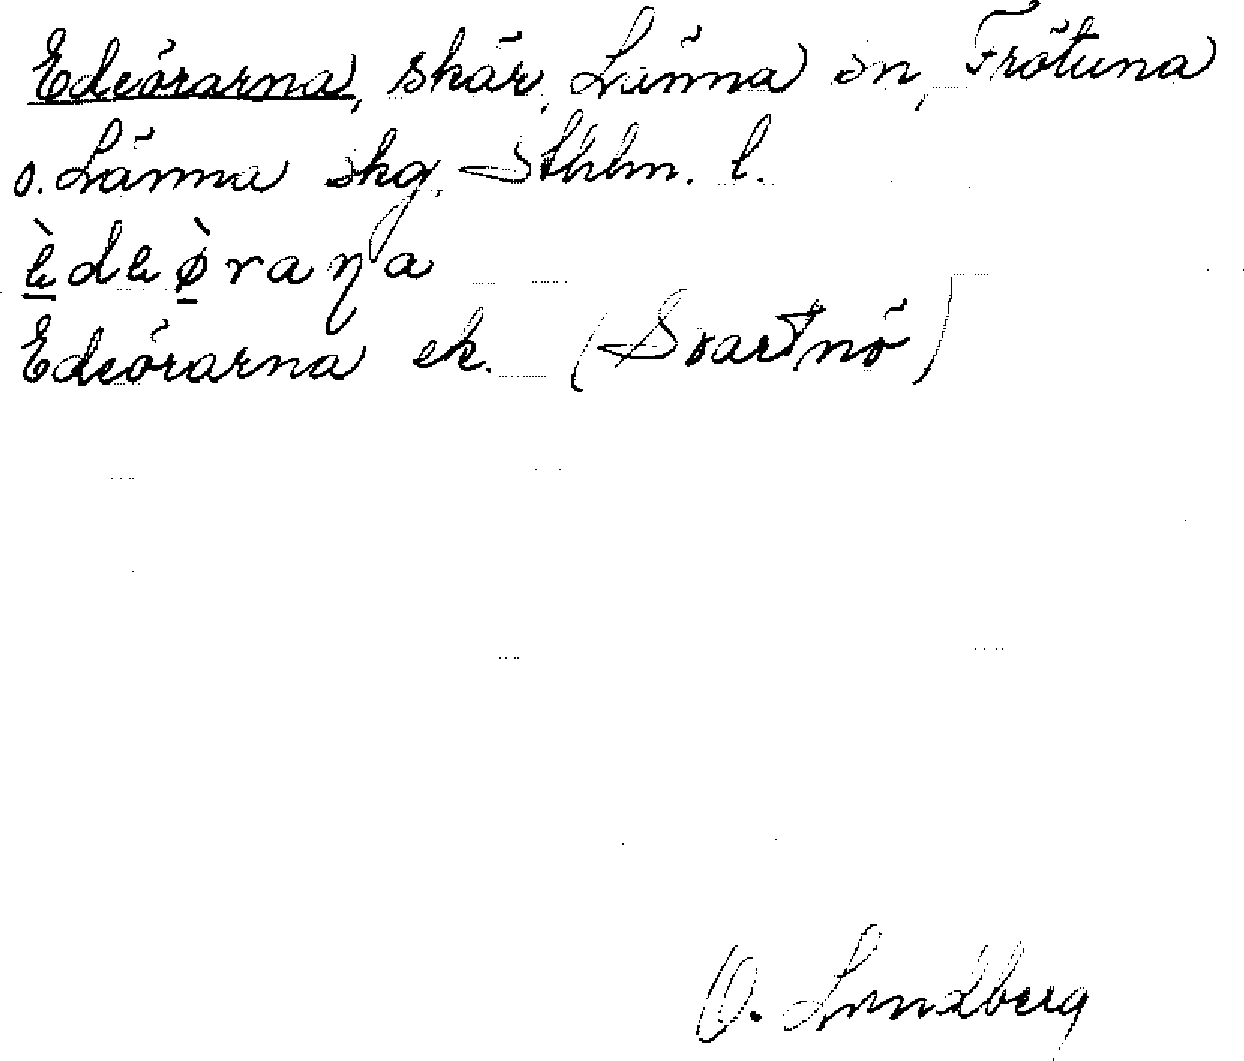 Edeörarna, skär, Länna sn, Frötuna
o. Länna skg. Sthlm. l.
è̱deø̱̀raɳa
Edeörarna ek. (Svartnö)
O. Lundberg